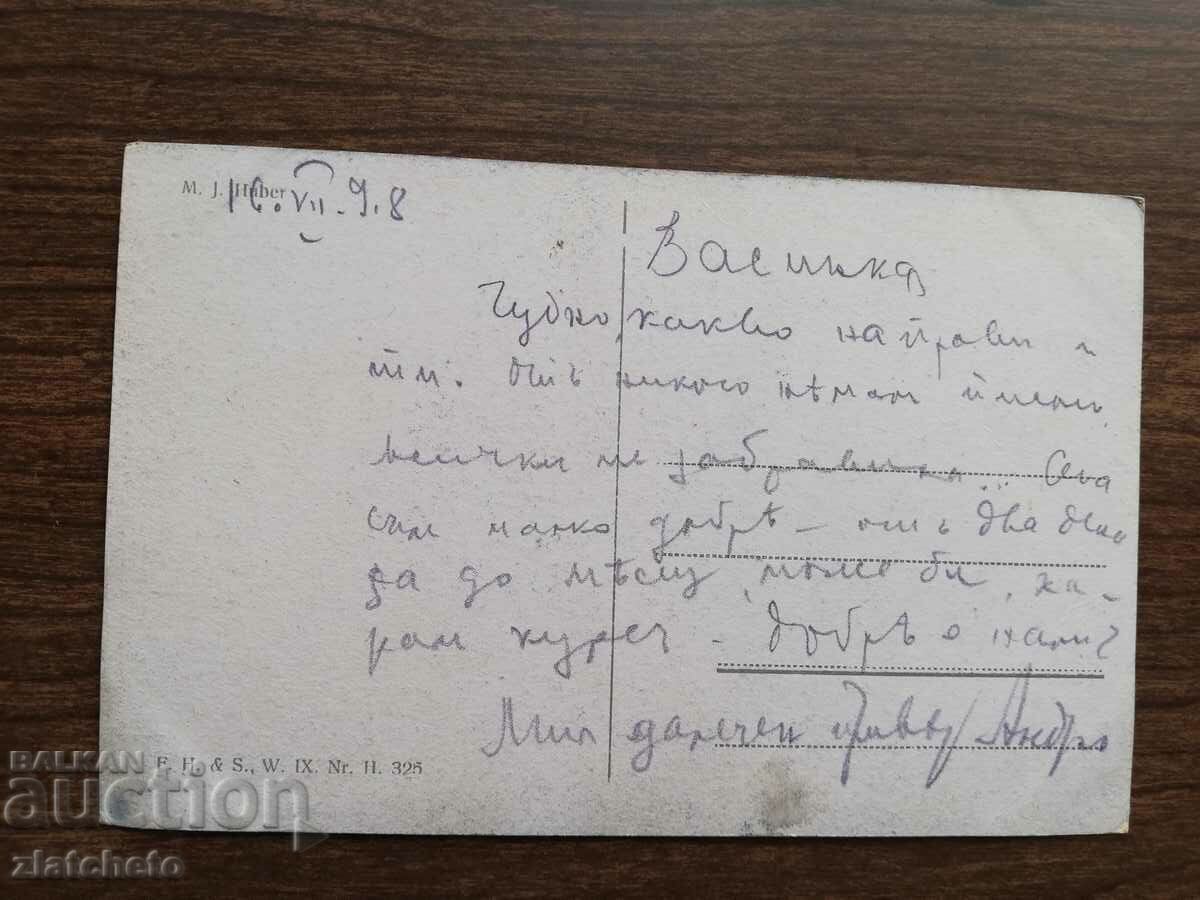 M. J. Huber
16.VII.9.8
Василка
Чудно, какво направи
ти. Отъ никого нѣмам
всички ме забравиха... Сега
съм малко добрѣ – отъ два дена
да до мѣсец може би, ка-
рам курсъ – добрѣ е нали?
Мил далечен привет Андрю
F. H. & S., W. IX. Nr. H. 325
BALKAN
auction
zlatcheto